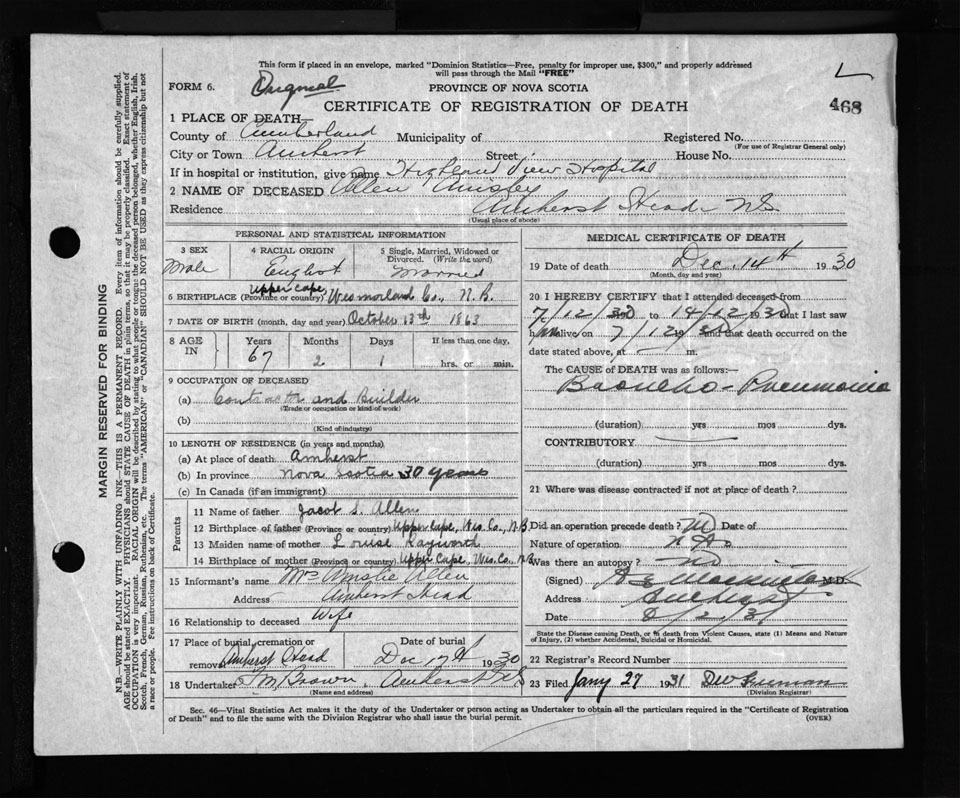 This form if placed in an envelope, marked "Dominion Statistics—Free, penalty for improper use, $300," and properly addressed
will pass through the Mail "FREE"
FORM 6. Original PROVINCE OF NOVA SCOTIA L
CERTIFICATE OF REGISTRATION OF DEATH 468
1 PLACE OF DEATH—
County of Cumberland Municipality of Registered No.
(For use of Registrar General only)
City or Town Amherst Street House No.
If in hospital or institution, give name Highland View Hospital
2 NAME OF DECEASED Allen Ainsley
Residence Amherst Head NS
(Usual place of abode)
PERSONAL AND STATISTICAL INFORMATION
3 SEX 4 RACIAL ORIGIN 5 Single, Married, Widowed or Divorced. (Write the word)
Male English Married
Upper Cape,
6 BIRTHPLACE (Province or country) Wesmorland Co., N.B.
7 DATE OF BIRTH (month, day and year) October 13th 1863
8 AGE IN Years Months Days If less than one day,
67 2 1 hrs. or min.
9 OCCUPATION OF DECEASED
(a) Contractor and Builder
(Trade or occupation or kind of work)
(b)
(Kind of industry)
10 LENGTH OF RESIDENCE (in years and months)
(a) At place of death Amherst
(b) In province Nova Scotia 30 years
(c) In Canada (if an immigrant)
Parents
11 Name of father Jacob S. Allen
12 Birthplace of father (Province or country) Upper Cape, Wes. Co., N.B.
13 Maiden name of mother Louise Rayworth
14 Birthplace of mother (Province or country) Upper Cape, Wes. Co., N.B.
15 Informant's name Mrs Ainslie Allen
Address Amherst Head
16 Relationship to deceased Wife
17 Place of burial, cremation or removal Amherst Head Date of burial Dec 1930
18 Undertaker Brown Amherst NS
(Name and address)
MEDICAL CERTIFICATE OF DEATH
19 Date of death Dec. 14th 1930
(Month, day and year)
20 I HEREBY CERTIFY that I attended deceased from
7/12/30 to 14/12/1930 that I last saw
him alive on 7/12/30 and that death occurred on
date stated above, at m.
The CAUSE of DEATH was as follows:—
Broncho-Pneumonia
(duration) yrs mos dys.
CONTRIBUTORY
(duration) yrs mos dys.
21 Where was disease contracted if not at place of death?
Did an operation precede death? No Date of
Nature of operation
Was there an autopsy? No
(Signed) M.D.
Address Amherst
Date
State the Disease causing Death, or in death from Violent Causes, state (1) Means and Nature
of Injury, (2) whether Accidental, Suicidal or Homicidal.
22 Registrar's Record Number
23 Filed Jany 27 1931 Freeman
(Division Registrar)
Sec. 46—Vital Statistics Act makes it the duty of the Undertaker or person acting as Undertaker to obtain all the particulars required in the "Certificate of Registration
of Death" and to file the same with the Division Registrar who shall issue the burial permit. (OVER)
MARGIN RESERVED FOR BINDING
N.B.—WRITE PLAINLY WITH UNFADING INK—THIS IS A PERMANENT RECORD. Every item of information should be carefully supplied.
AGE should be stated EXACTLY. PHYSICIANS should STATE CAUSE OF DEATH in plain terms, so that it may be properly classified. Exact statement of
OCCUPATION is very important. RACIAL ORIGIN will be described by stating to what people or tongue the deceased person belonged, whether English, Irish,
Scotch, French, German, Russian, Ruthenian, etc. The terms "AMERICAN" or "CANADIAN" SHOULD NOT BE USED as they express citizenship but not
a race or people. Fee instructions on back of Certificate.